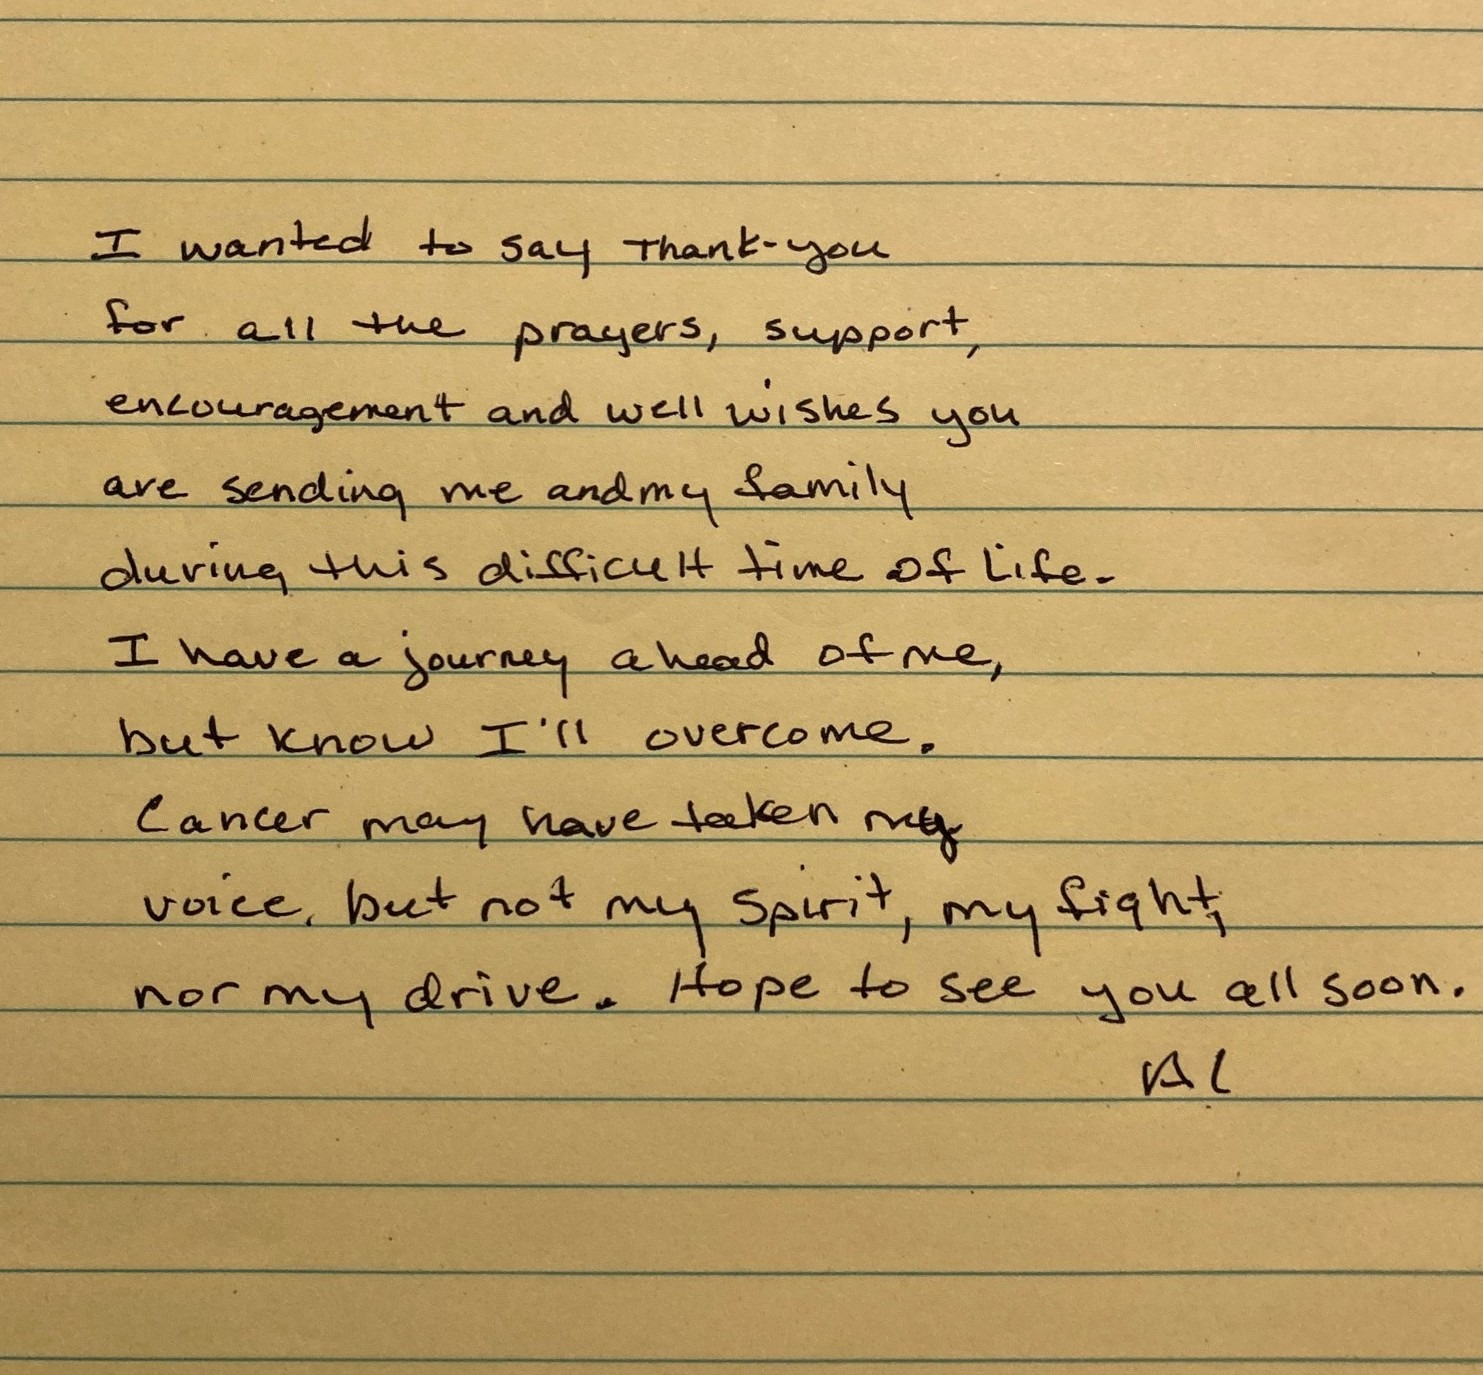 I wanted to say Thank-you
for all the prayers, support,
encouragement and well wishes you
are sending me and my family
during this difficult time of Life.
I have a journey ahead of me,
but know I'll overcome.
Cancer may have taken my
voice, but not my spirit, my fight,
nor my drive. Hope to see you all soon.
Al